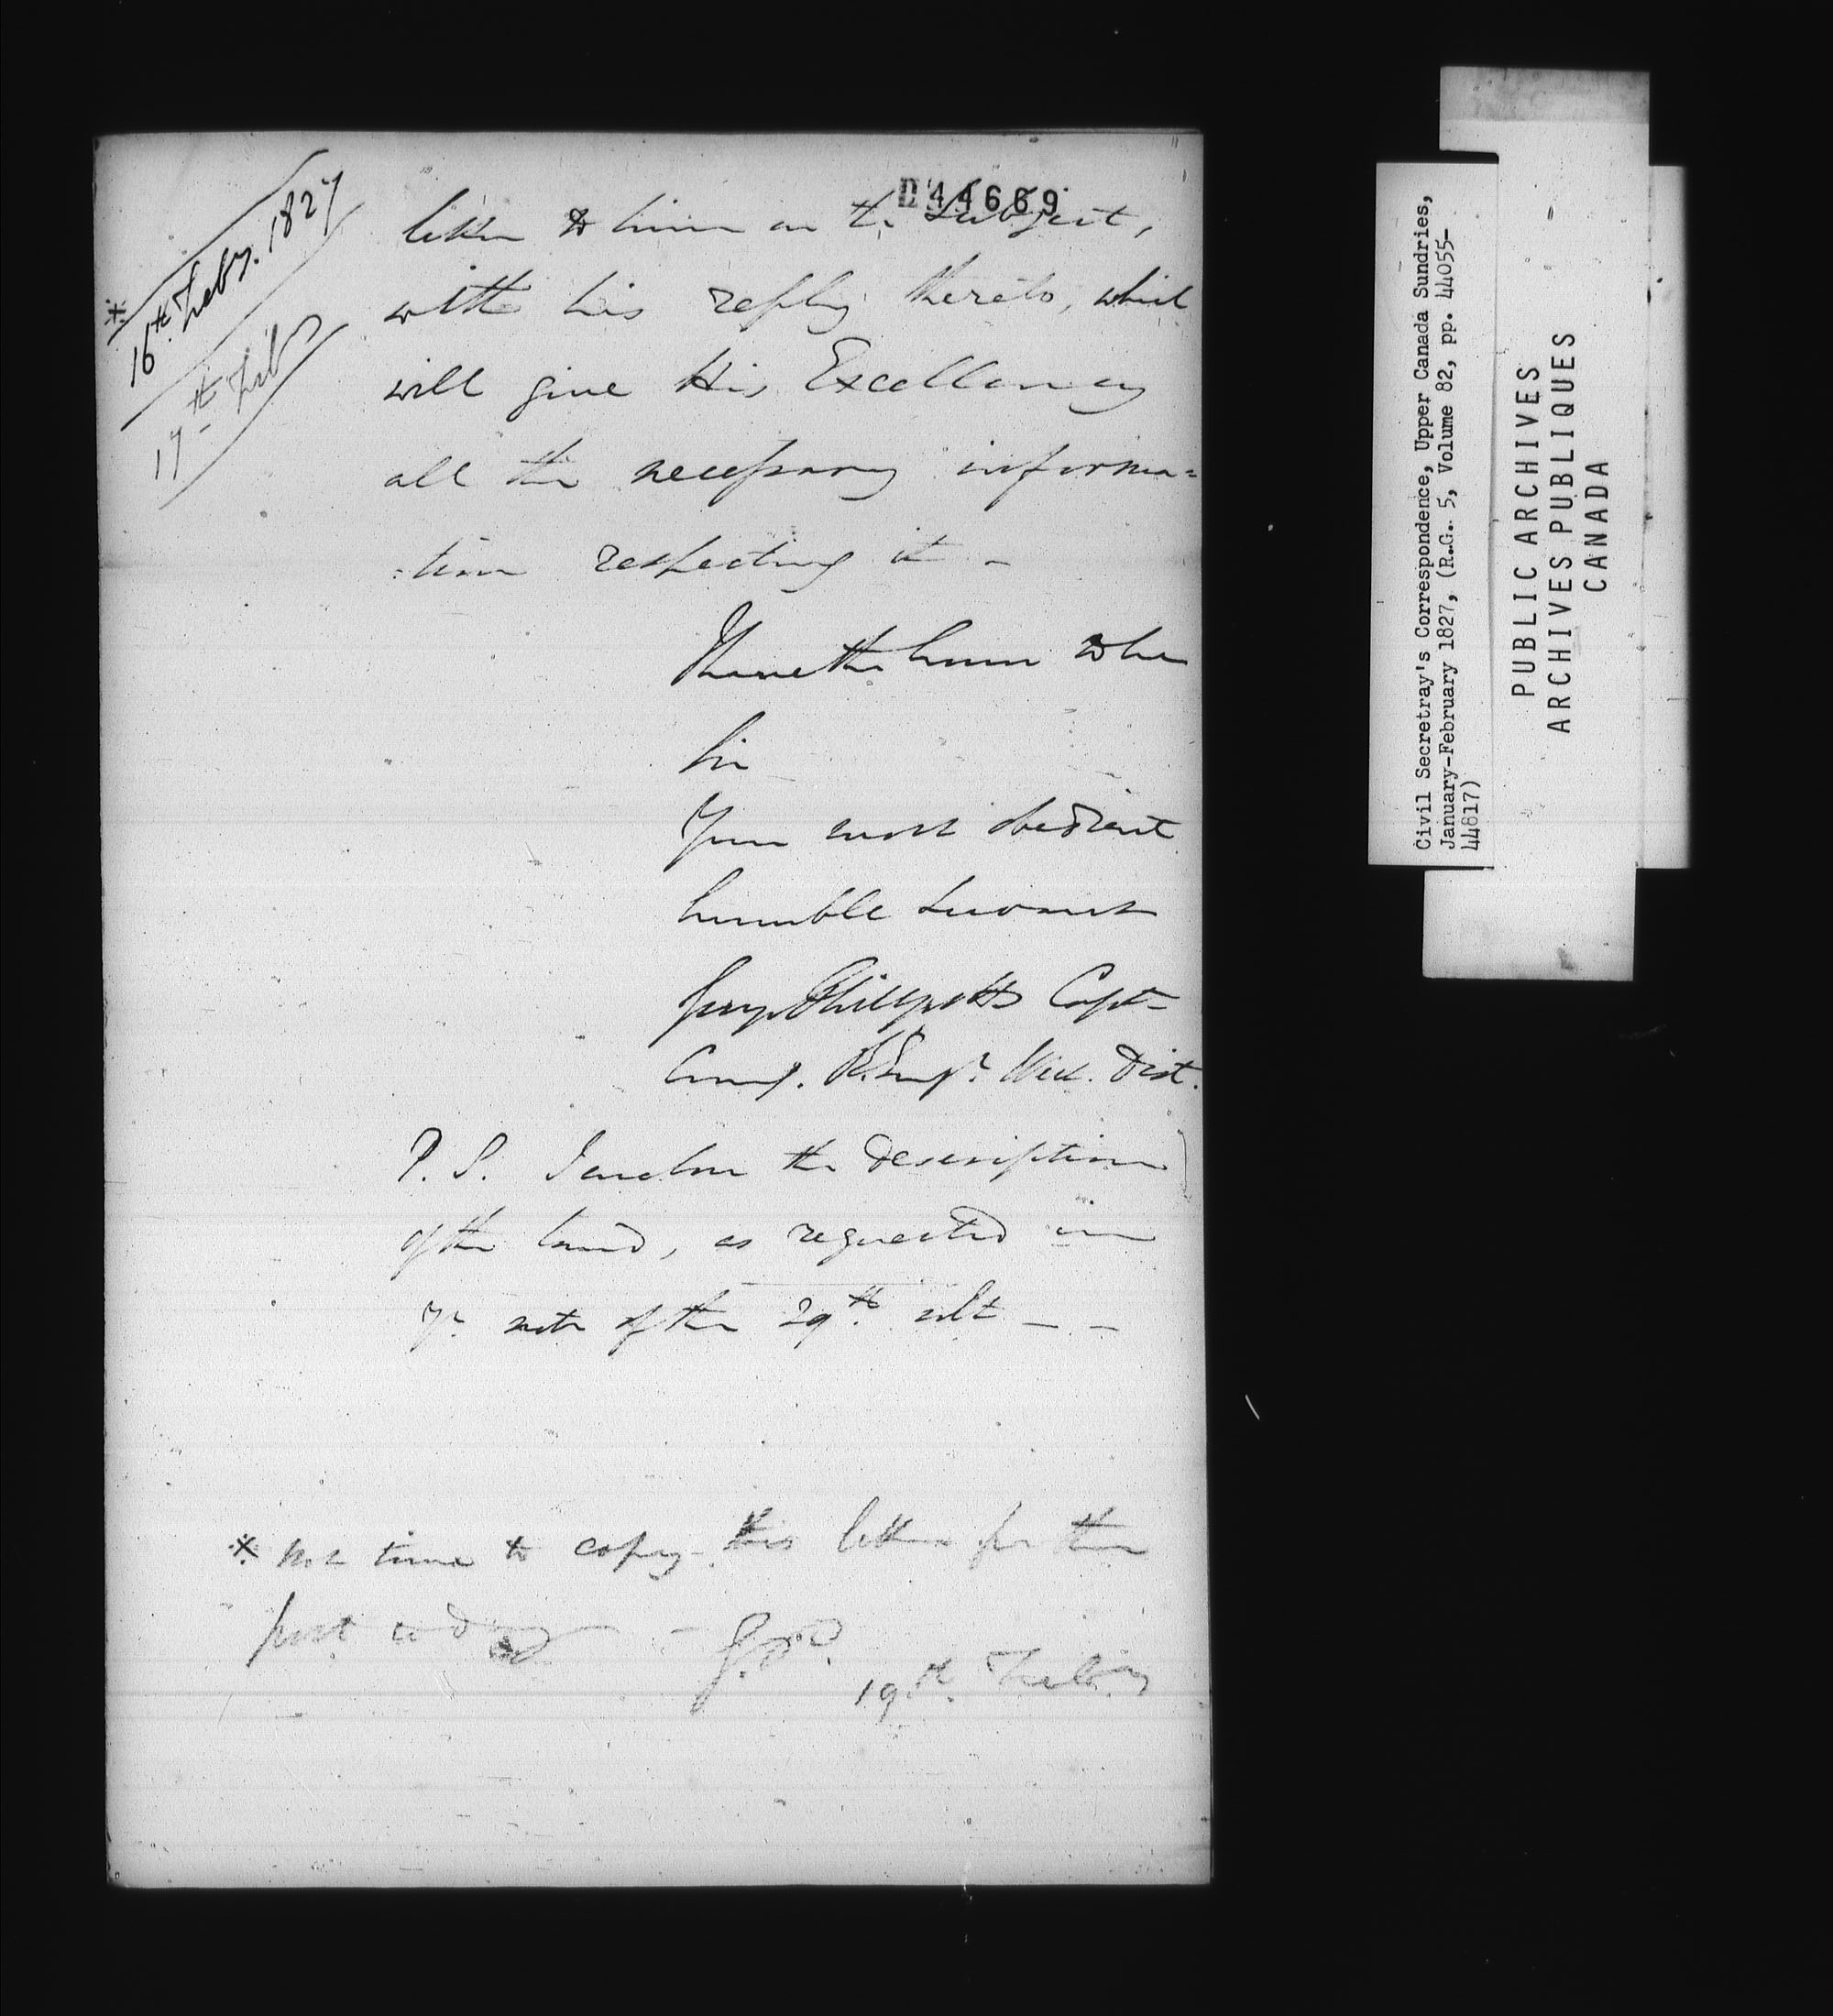 D44669
* 16th Feby. 1827
17th Feb
letter to him on the subject,
with his reply thereto, which
will give His Excellency
all the necessary informa=
:tion respecting it -
I have the honor to be
Sir
Your most obedient
humble Servant
Geo Phillpotts Capt
Comg. R. Engr. Dist.
P. S. I enclose the description
of the land, as requested in
yr. note of the 29th. ult - -
* not time to copy this letter for the
post to day - G.P.
19th. Feby
Civil Secretray's Correspondence, Upper Canada Sundries,
January-February 1827, (R.G. 5, Volume 82, pp. 44055-
44817)
PUBLIC ARCHIVES
ARCHIVES PUBLIQUES
CANADA